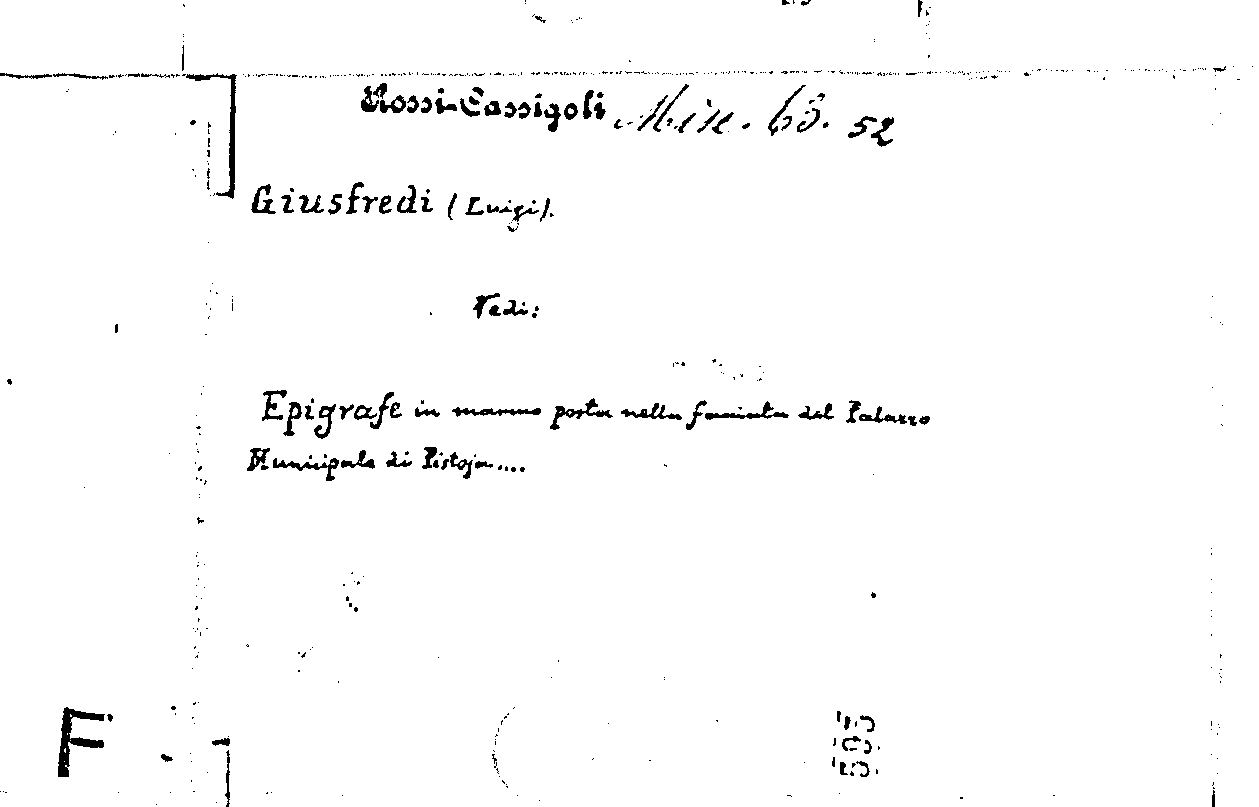 Rossi-Cassigoli Misc. 63. 52
Giusfredi (Luigi).
Vedi:
Epigrafe in marmo posta nella facciata del Palazzo
Municipale di Pistoja....
F